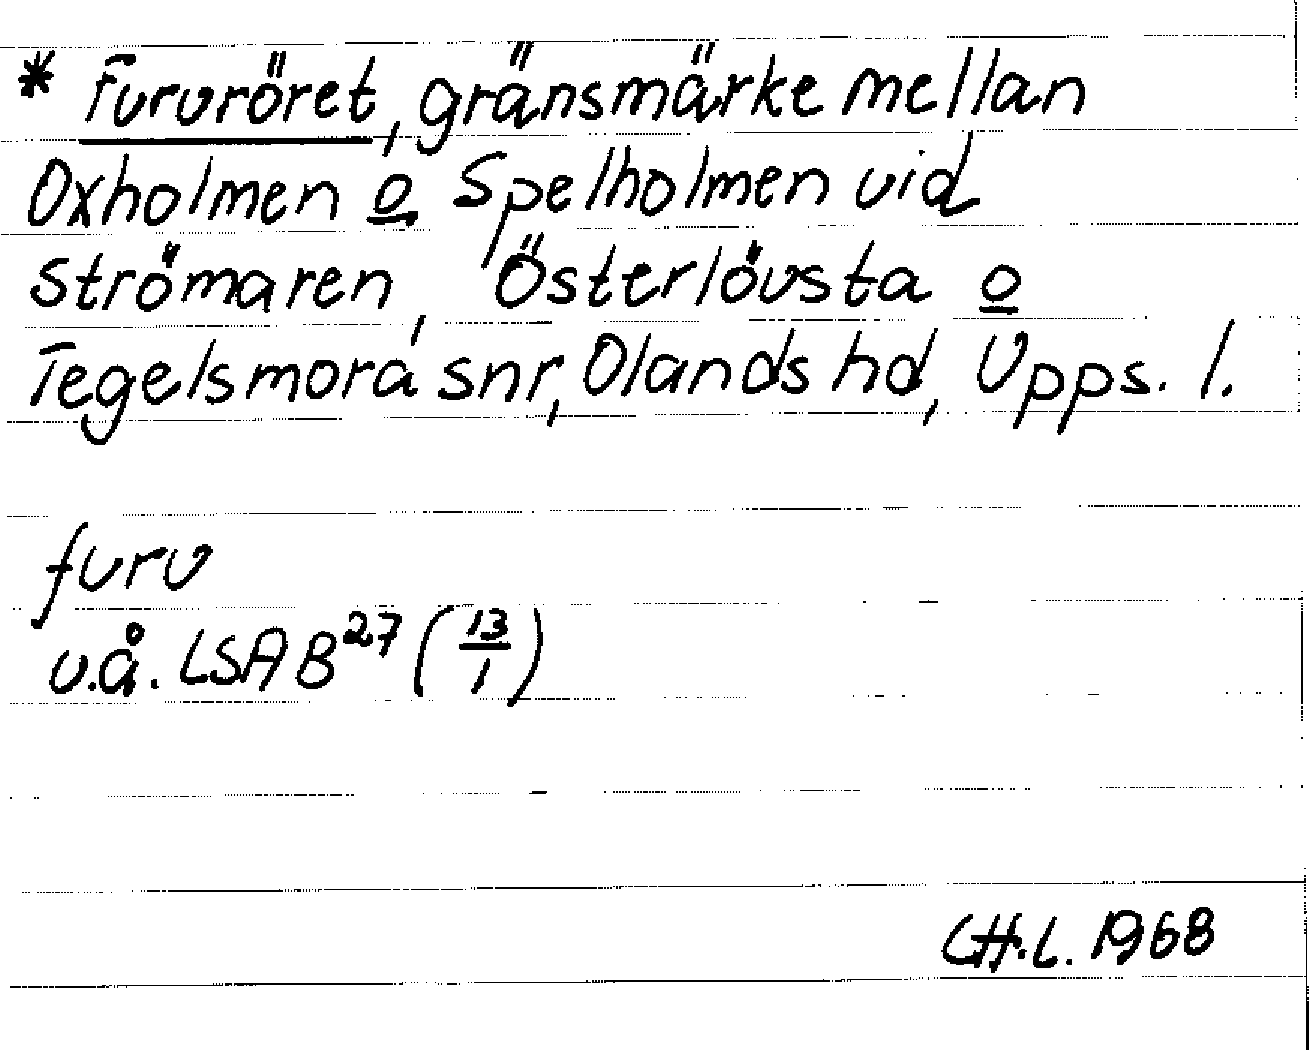 * Fururöret, gränsmärke mellan
Oxholmen o Spelholmen vid
Strömaren, Österlövsta o
Tegelsmora snr, Olands hd, Upps. l.
furu
u.å. LSA B27 (13/1)
C.H.L. 1968